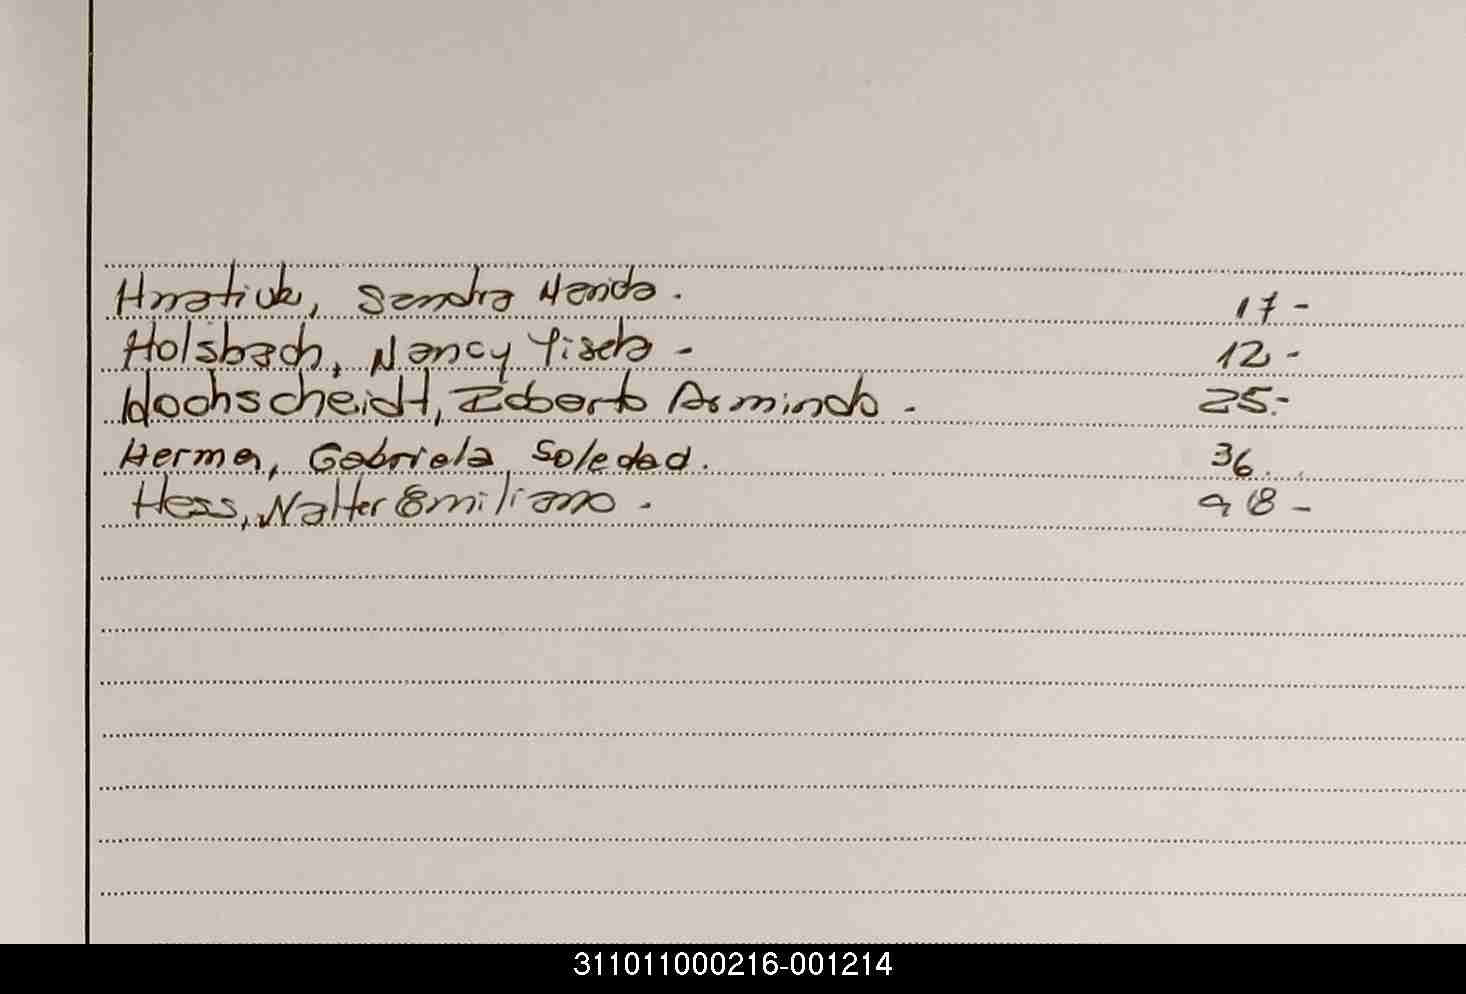 Hnatiuk, Sandra Wanda. 17-
Holsbach, Nancy Yisela - 12-
Hochscheidt, Roberto Armindo. 25.-
Herman, Gabriela Soledad. 36.
Hess, Walter Emiliano. 98-
311011000216-001214